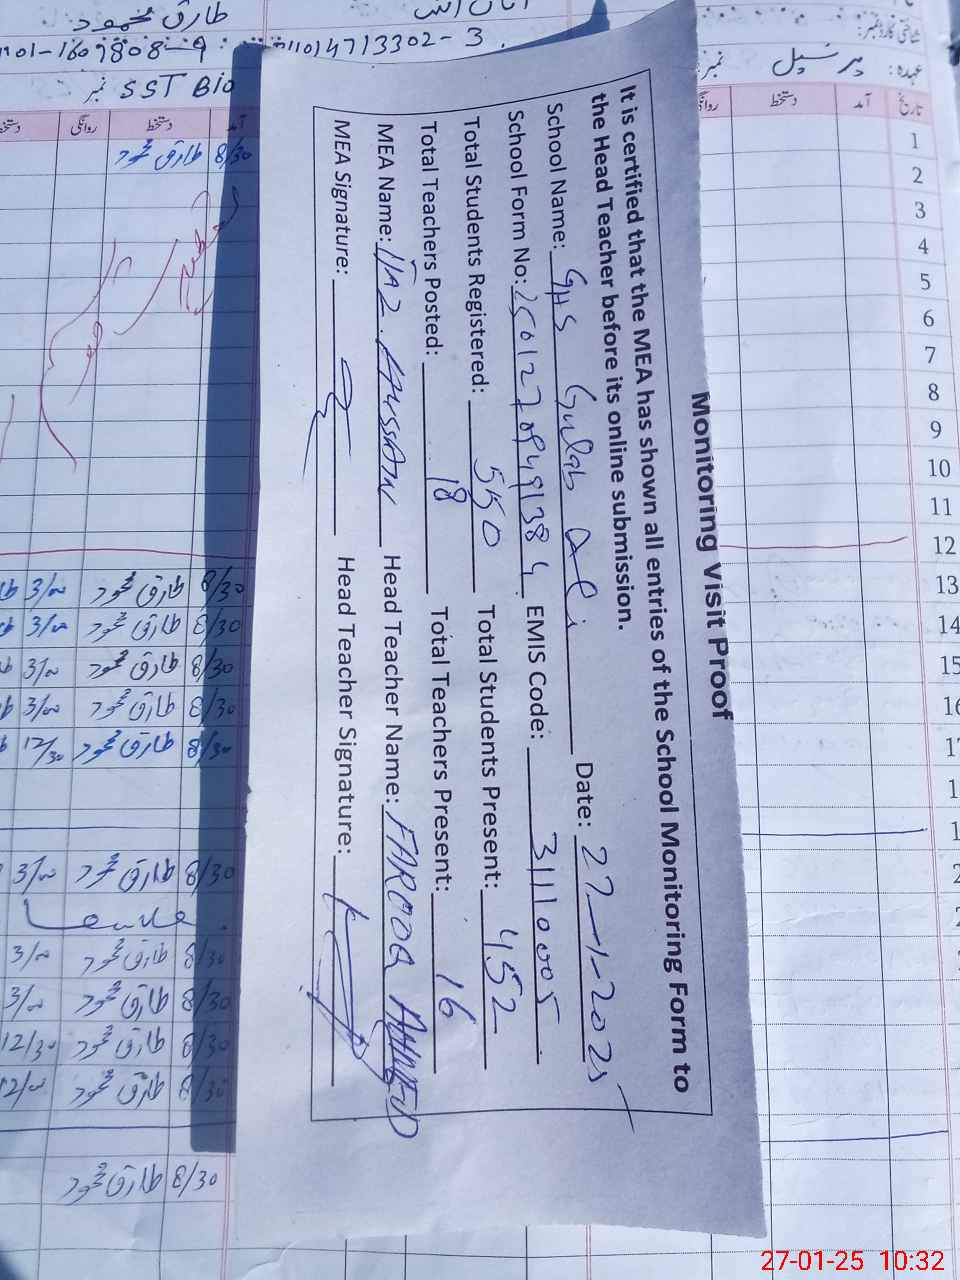 Monitoring Visit Proof
It is certified that the MEA has shown all entries of the School Monitoring Form to
the Head Teacher before its online submission.
School Name: GHS Gulab Ali Date: 27-1-2025
School Form No: EMIS Code: 31110005
Total Students Registered: 550 Total Students Present: 452
Total Teachers Posted: 18 Total Teachers Present: 16
MEA Name: IJAZ HUSSAIN Head Teacher Name: FAROOQ AHMED
MEA Signature: Head Teacher Signature:
طارق محمود
31101-1609808-9
SST Bio
نمبر
آمد دستخط روانگی دستخط
8/30 طارق محمود
شناختی کارڈ نمبر:
311014713302-3
عہدہ: پرنسپل نمبر
تاریخ آمد دستخط روانگی
1
2
3
4
5
6
7
8
9
10
11
12
13
14
15
8/30 طارق محمود 3/00
8/30 طارق محمود 3/00
8/30 طارق محمود 3/00
8/30 طارق محمود 3/00
8/30 طارق محمود 12/30
8/30 طارق محمود 3/00
8/30 طارق محمود 3/00
8/30 طارق محمود 3/00
8/30 طارق محمود 12/30
8/30 طارق محمود 12/00
8/30 طارق محمود
27-01-25 10:32